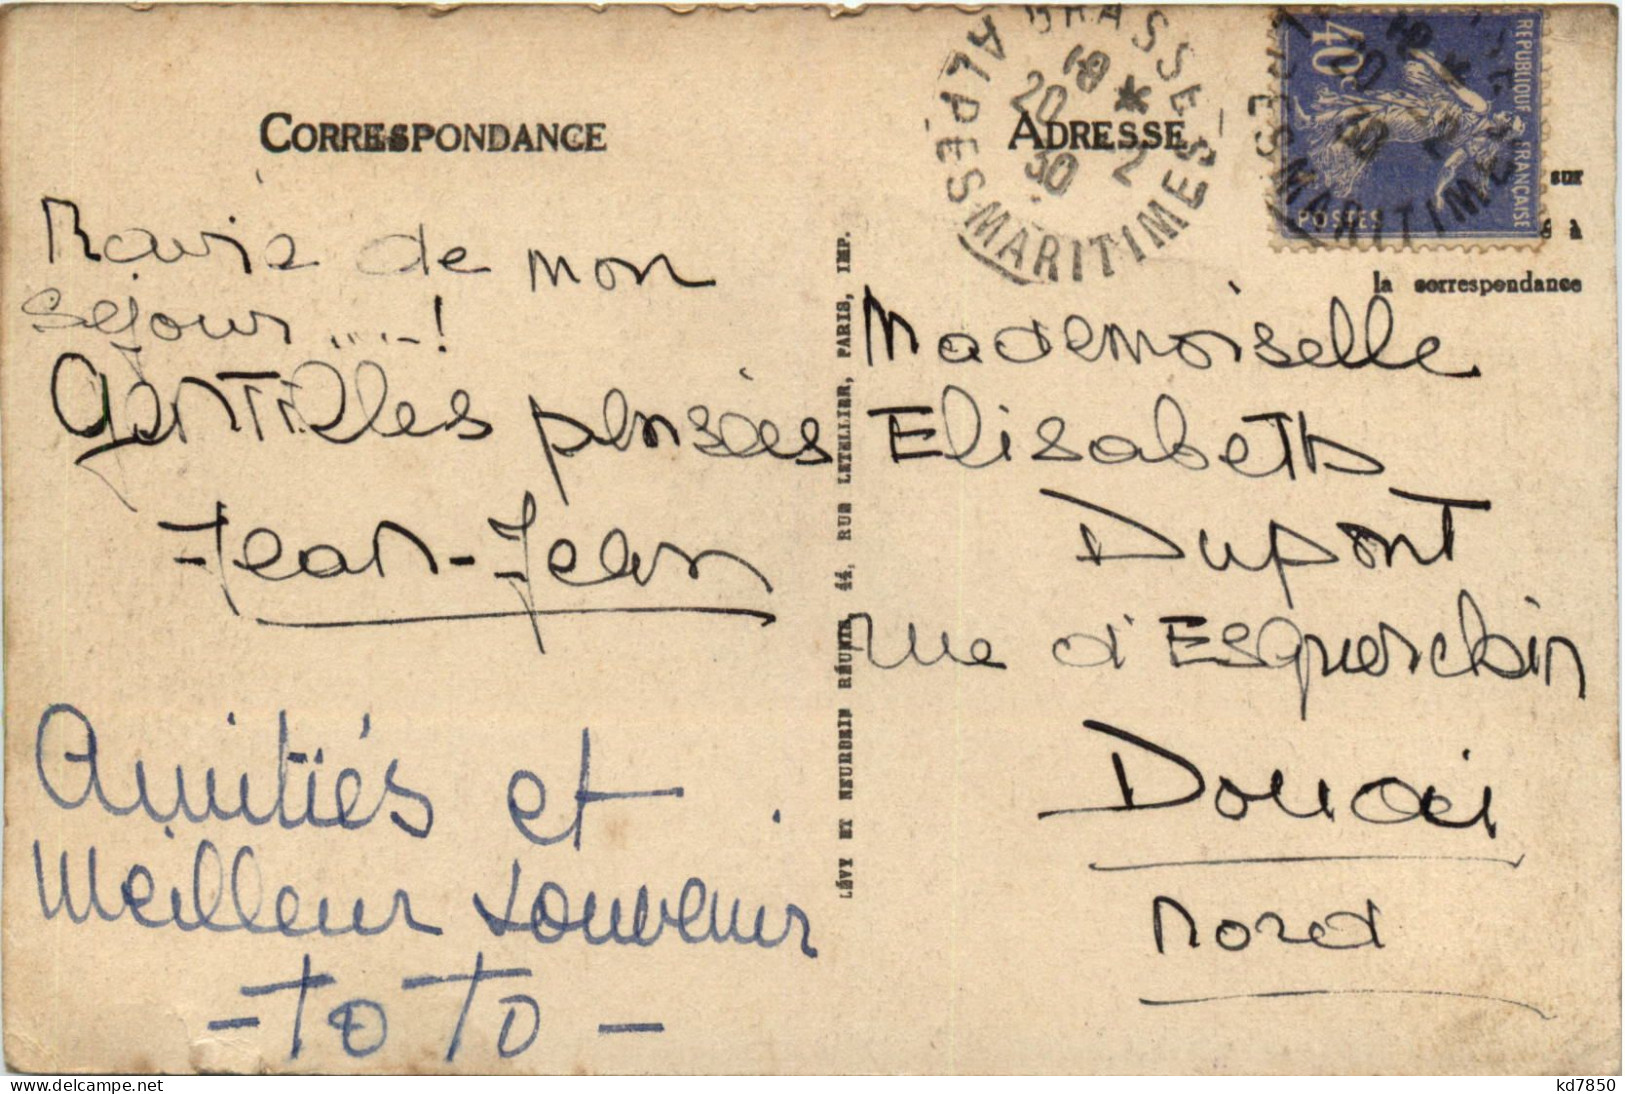 CORRESPONDANCE
Ravie de mon
séjour.....!
Gentilles pensées
Jean-Jean
Amitiés et
Meilleur souvenir
- TOTO -
LÉVY ET NEURDEIN RÉUNIS, 44, RUE LETELLIER, PARIS, IMP.
ADRESSE
GRASSE
ALPES MARITIMES
18 *
20 2
30
REPUBLIQUE FRANÇAISE
40c
POSTES
18 *
20 2
30
ES MARITIMES
sur
é à
la correspondance
Mademoiselle
Elisabeth
Dupont
rue d'Esquerchin
Douai
Nord
kd7850